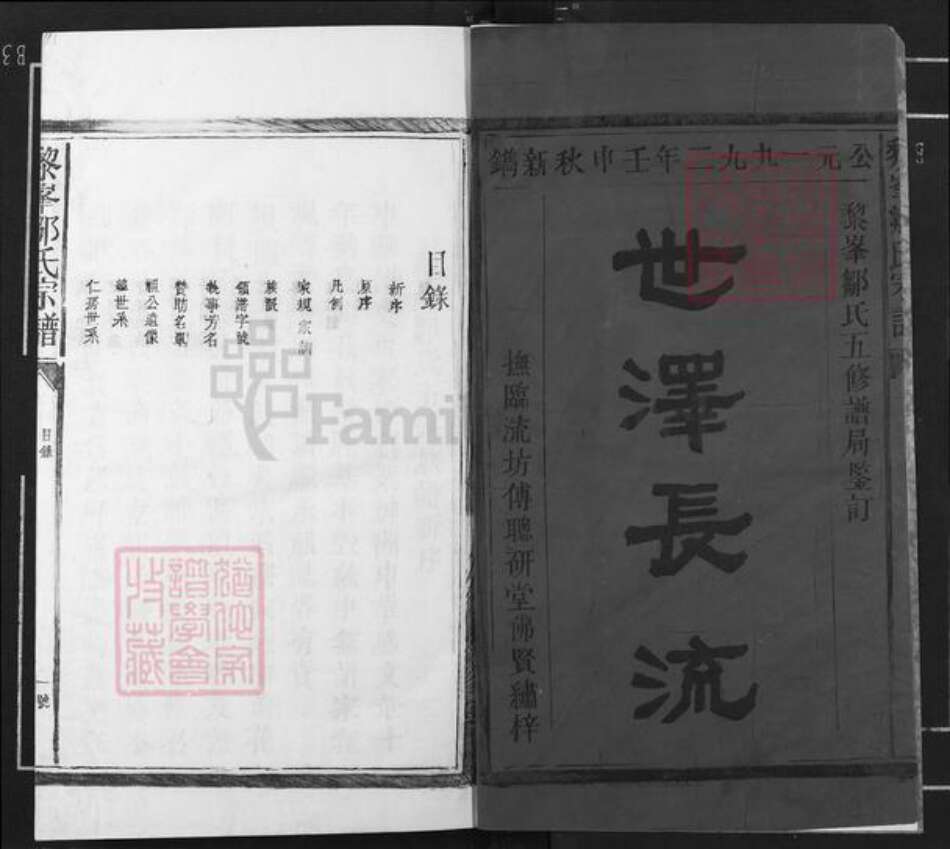 公元一九九二年壬申秋新鐫
黎峯鄒氏五修譜局鑒訂
世澤長流
撫臨流坊傅聰研堂佛賢繡梓
目錄
新序
原序
凡例
家規家訓
族誥
領譜字號
執事芳名
贊助名單
顯公遺像
總世系
仁房世系
黎峯鄒氏宗譜
目錄
號
譜學會
收藏
Famil
B3